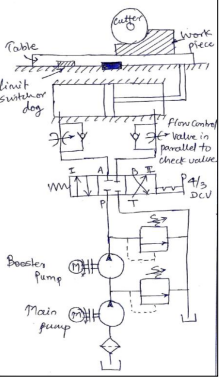 Cutter
Table
Work
piece
Limit
switch or
dog
Flow Control
Valve in
parallel to
check valve
I A B II
P T
4/3
DCV
Booster
Pump
M
Main
pump
M